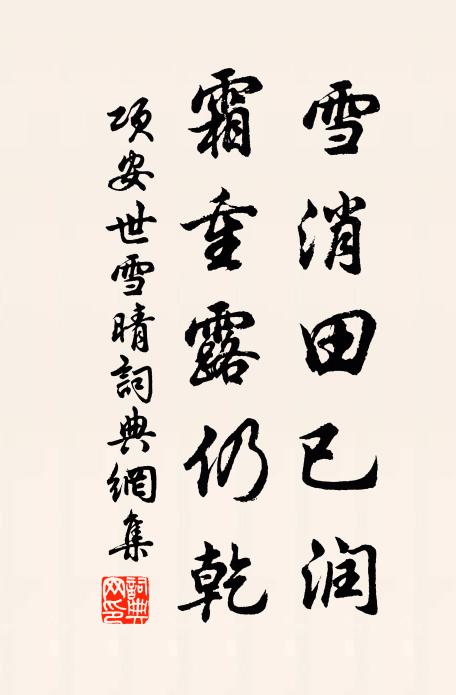 雪消田已润
霜重露仍乾
项安世雪晴詞典網集
詞典网印